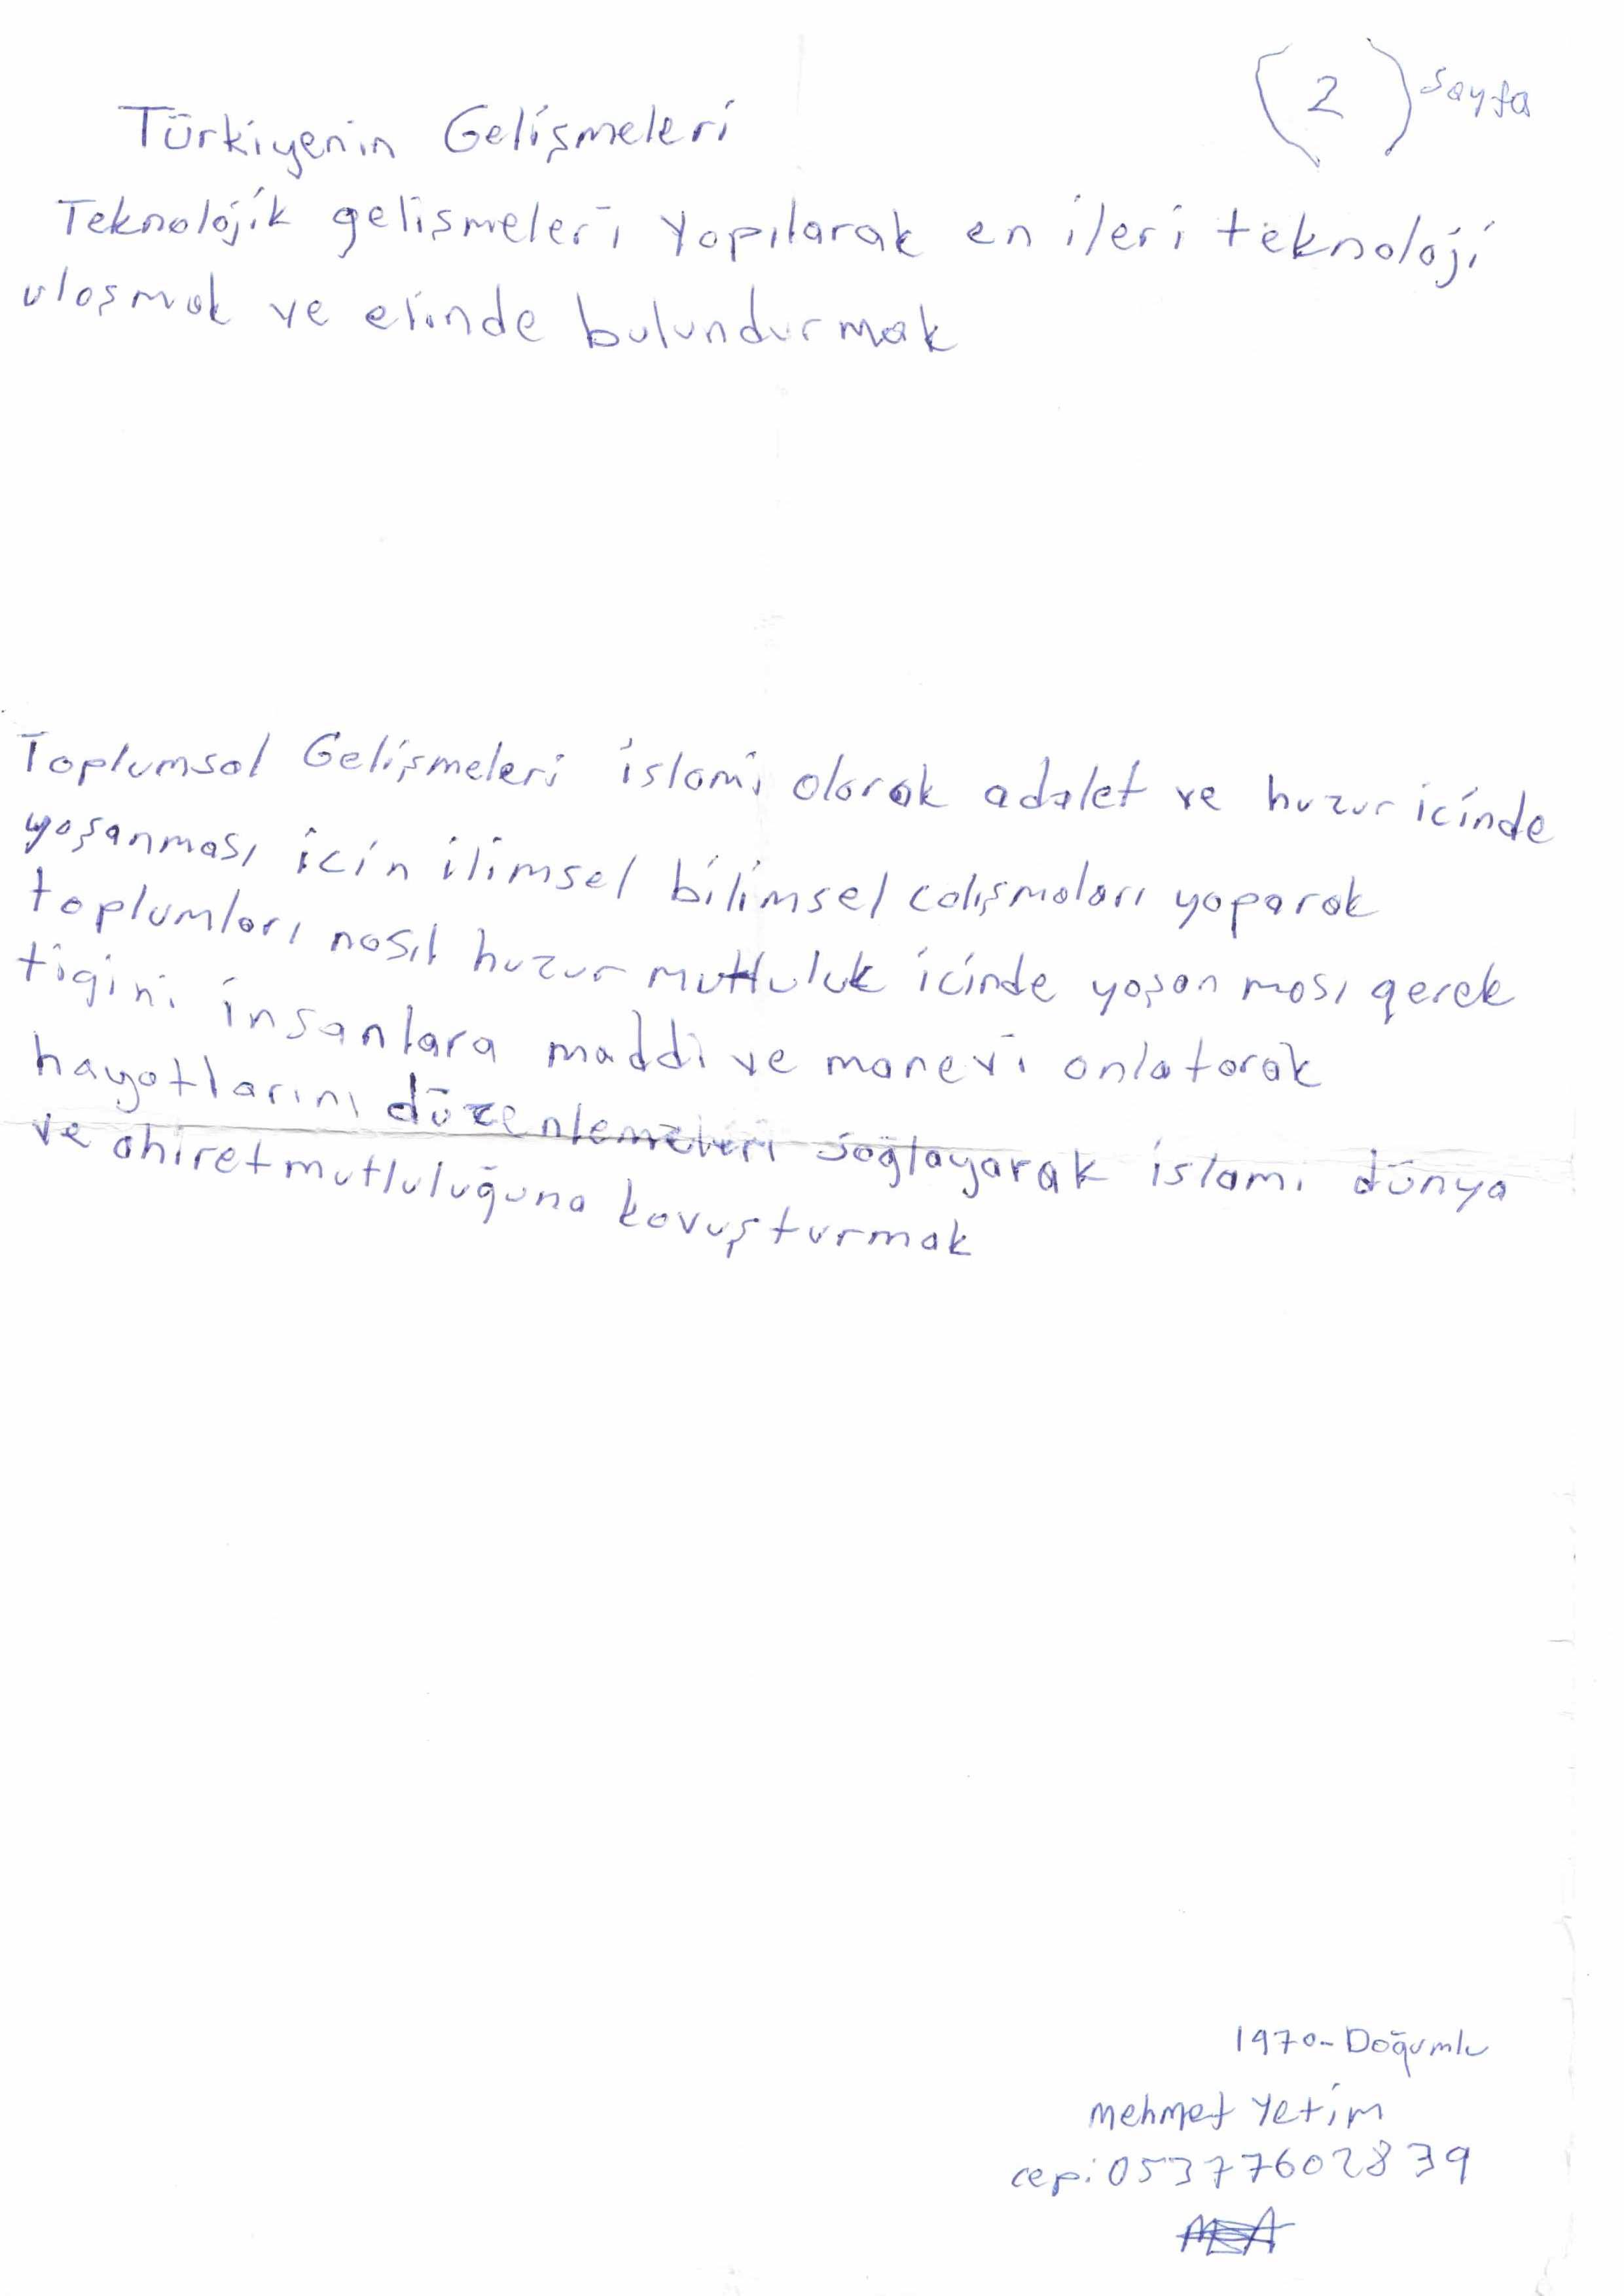 (2) Sayfa
Türkiyenin Gelişmeleri
Teknolojik gelişmeleri yapılarak en ileri teknoloji
ulaşmak ve elinde bulundurmak
Toplumsal Gelişmeleri islami olarak adalet ve huzur icinde
yaşanması icin ilimsel bilimsel calışmaları yaparak
toplumları nasıl huzur mutluluk icinde yaşan ması gerek
tigini insanlara maddi ve manevi anlatarak
hayatlarını düzenlemeleri sağlayarak islami dünya
ve ahiret mutluluğuna kavuşturmak
1970-Doğumlu
Mehmet Yetim
cepi 05377602839